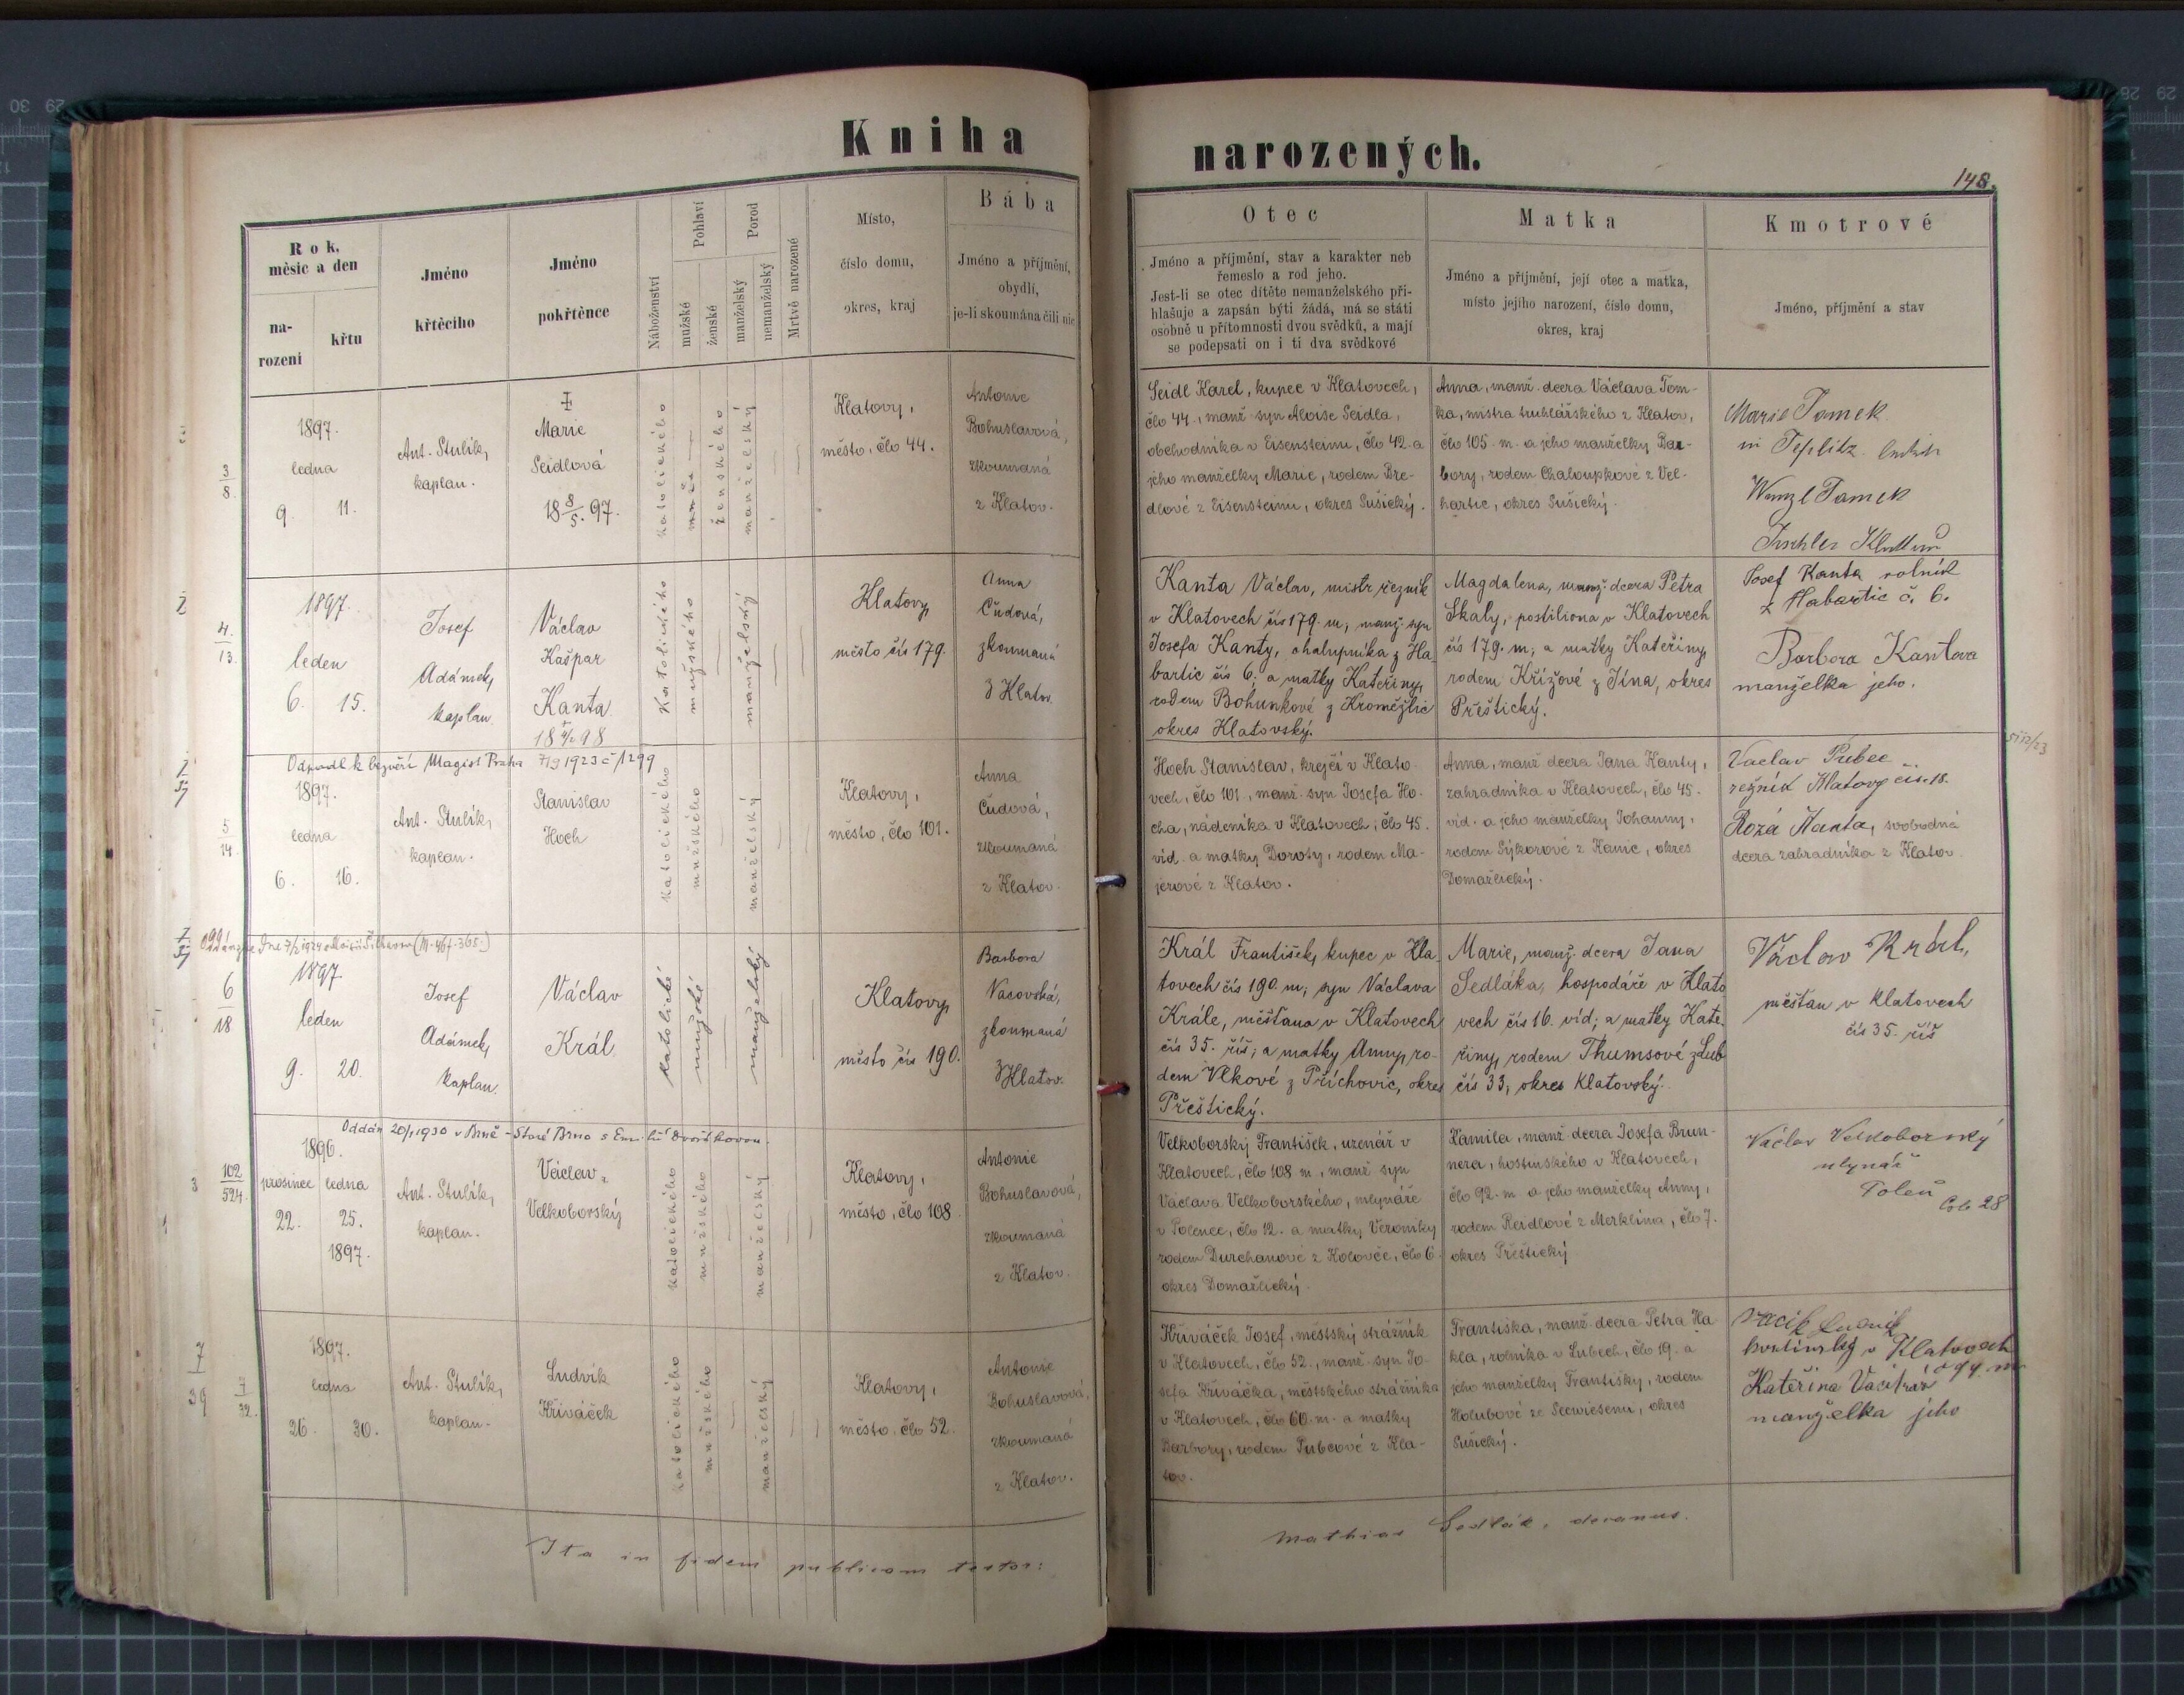 Kniha narozených.
148.
Rok, měsíc a den
narození
křtu
Jméno křtěcího
Jméno pokřtěnce
Náboženství
Pohlaví
mužské
ženské
Porod
manželský
nemanželský
Mrtvě narozené
Místo,
číslo domu,
okres, kraj
Bába
Jméno a příjmění,
obydlí,
je-li skoumána čili nic
Otec
Jméno a příjmění, stav a karakter neb
řemeslo a rod jeho.
Jest-li se otec dítěte nemanželského při-
hlašuje a zapsán býti žádá, má se státi
osobně u přítomnosti dvou svědků, a mají
se podepsati on i ti dva svědkové
Matka
Jméno a příjmění, její otec a matka,
místo jejího narození, číslo domu,
okres, kraj
Kmotrové
Jméno, příjmění a stav
3
8
1897.
ledna
9. 11.
Ant. Stulík,
kaplan.
Marie
Seidlová
18 8/5. 97.
katolického
ženského
manželský
Klatovy,
město, člo 44.
Antonie
Bohuslavová,
zkoumaná
z Klatov.
Seidl Karel, kupec v Klatovech,
člo 44., manž. syn Aloise Seidla,
obchodníka v Eisensteinu, člo 42. a
jeho manželky Marie, rodem Bre-
dlové z Eisensteinu, okres Sušický.
Anna, manž. dcera Václava Tom-
ka, mistra truhlářského z Klatov,
člo 105. m. a jeho manželky Bar-
bory, rodem Chaloupkové z Vel-
hartic, okres Sušický.
Marie Tomek
in Teplitz
Wenzl Tomek
Tischler Klattau
4.
13.
1897.
leden
6. 15.
Josef
Adámek,
kaplan.
Václav
Kašpar
Kanta
katolického
mužského
manželský
Klatovy,
město čís 179.
Anna
Čudová,
zkoumaná
z Klatov.
Kanta Václav, mistr řezník
v Klatovech čís 179. m; manž. syn
Josefa Kanty, chalupníka z Ha-
bartic čís 6. a matky Kateřiny,
rodem Bohunkové z Kroměždic
okres Klatovský.
Magdalena, manž. dcera Petra
Skaly, postiliona v Klatovech
čís 179. m; a matky Kateřiny,
rodem Křížové z Jína, okres
Přeštický.
Josef Kanta rolník
z Habartic č. 6.
Barbora Kantova
manželka jeho.
Odpadl k bezvěří Magist Praha 7/9 1923 č 1299
5
14.
1897.
ledna
6. 16.
Ant. Stulík,
kaplan.
Stanislav
Hoch
katolického
mužského
manželský
Klatovy,
město, člo 101.
Anna
Čudová,
zkoumaná
z Klatov.
Hoch Stanislav, krejčí v Klato-
vech, člo 101., manž. syn Josefa Ho-
cha, nádeníka v Klatovech, člo 45.
víd. a matky Doroty, rodem Ma-
jerové z Klatov.
Anna, manž. dcera Jana Kanty,
zahradníka v Klatovech, člo 45.
víd. a jeho manželky Johanny,
rodem Sýkorové z Kanic, okres
Domažlický.
Vaclav Pubec
režník Klatovy čís. 18.
Roza Kanta, svobodná
dcera zahradníka z Klatov.
6
18
1897
leden
9. 20.
Josef
Adámek,
kaplan.
Václav
Král
katolické
mužské
manželský
Klatovy,
město čís 190.
Barbora
Vacovská,
zkoumaná
z Klatov.
Král František, kupec v Kla-
tovech čís 190. m; syn Václava
Krále, měšťana v Klatovech
čís 35. říš; a matky Anny, ro-
dem Vlkové z Příchovic, okres
Přeštický.
Marie, manž. dcera Jana
Sedláka, hospodáře v Klato
vech čís 16. víd; a matky Kate-
řiny, rodem Thumsové z Lub
čís 33; okres Klatovský.
Václav Král,
měšťan v Klatovech
čís 35. říš
Oddán 20/1 1930 v Brně - Staré Brno s Emilií Dvořákovou.
102
524.
1896.
prosince ledna
22. 25.
1897.
Ant. Stulík,
kaplan.
Václav
Velkoborský
katolického
mužského
manželský
Klatovy,
město, člo 108.
Antonie
Bohuslavová,
zkoumaná
z Klatov.
Velkoborský František, uzenář v
Klatovech, člo 108 m., manž. syn
Václava Velkoborského, mlynáře
v Polence, člo 12. a matky Veroniky
rodem Durchanové z Kolovče, člo 6.
okres Domažlický.
Kamila, manž. dcera Josefa Brun-
nera, hostinského v Klatovech,
člo 92. m. a jeho manželky Anny,
rodem Reidlové z Merklína, člo 7.
okres Přeštický
Václav Velkoborský
mlynář
Poleň
28
7
32.
1897.
ledna
26. 30.
Ant. Stulík,
kaplan.
Ludvík
Křiváček
katolického
mužského
manželský
Klatovy,
město člo 52.
Antonie
Bohuslavová,
zkoumaná
z Klatov.
Křiváček Josef, městský strážník
v Klatovech, člo 52., manž. syn Jo-
sefa Křiváčka, městského strážníka
v Klatovech, člo 60. m. a matky
Barbory, rodem Pubcové z Kla-
tov.
Františka, manž. dcera Petra Ha
kla, rolníka v Lubech, člo 19. a
jeho manželky Františky, rodem
Holubové ze Seewiesenu, okres
Sušický.
hostinský v Klatovech
Kateřina
manželka jeho
Ita in fidem publicam testor:
Mathias Sedlák, decanus.